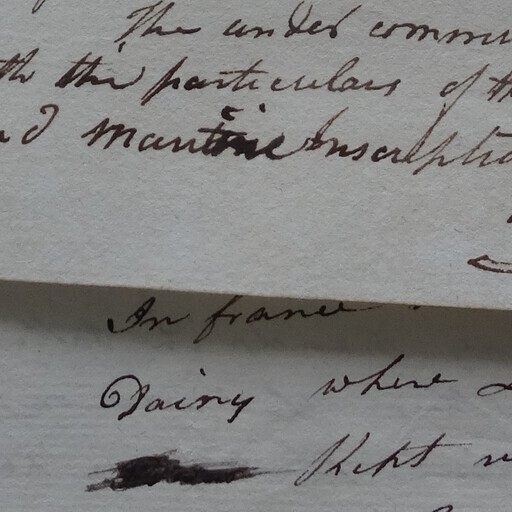 The under commu
th the particulars of th
nd Marine Inscriptio
In france
Dairy where
Kept